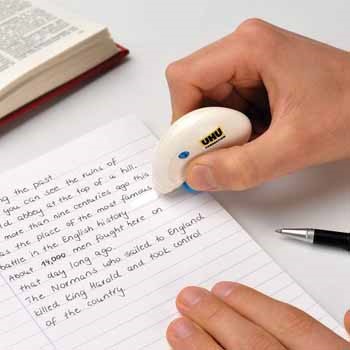 UHU
ng the past.
you can see the ruins of
ld abbey at the top of a hill.
more than nine centuries ago this
as the place of the most famous
battle in the English history
about 14,000 men fought here on
that day long ago.
The Normans who sailed to England
killed King Harold and took control
of the country.